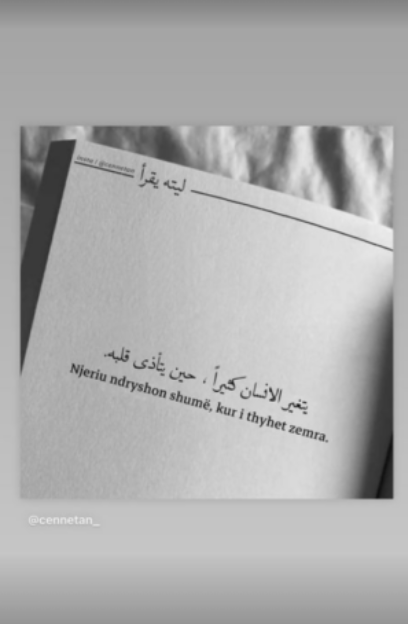 ليته يقرأ
يتغير الانسان كثيراً ، حين يتأذى قلبه.
Njeriu ndryshon shumë, kur i thyhet zemra.
@cennetan_